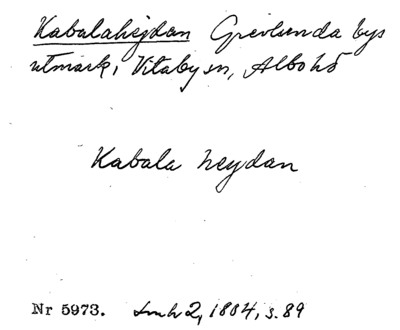 Kabalahejdan Grevlunda bys
utmark, Vitaby sn, Albo hd
Kabala heydan
Nr 5973. Lmh 2, 1804, s. 89